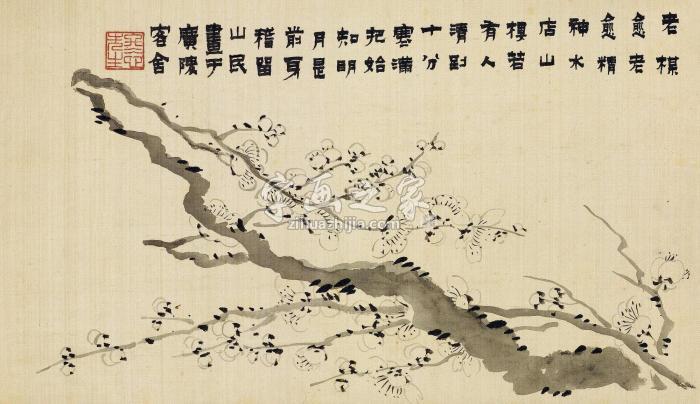 老楳
愈老
愈精
神水
店山
樓若
有人
清到
十分
寒滿
把始
知明
月是
前身
稽留
山民
畫于
廣陵
客舍
字画之家
zihuazhijia.com